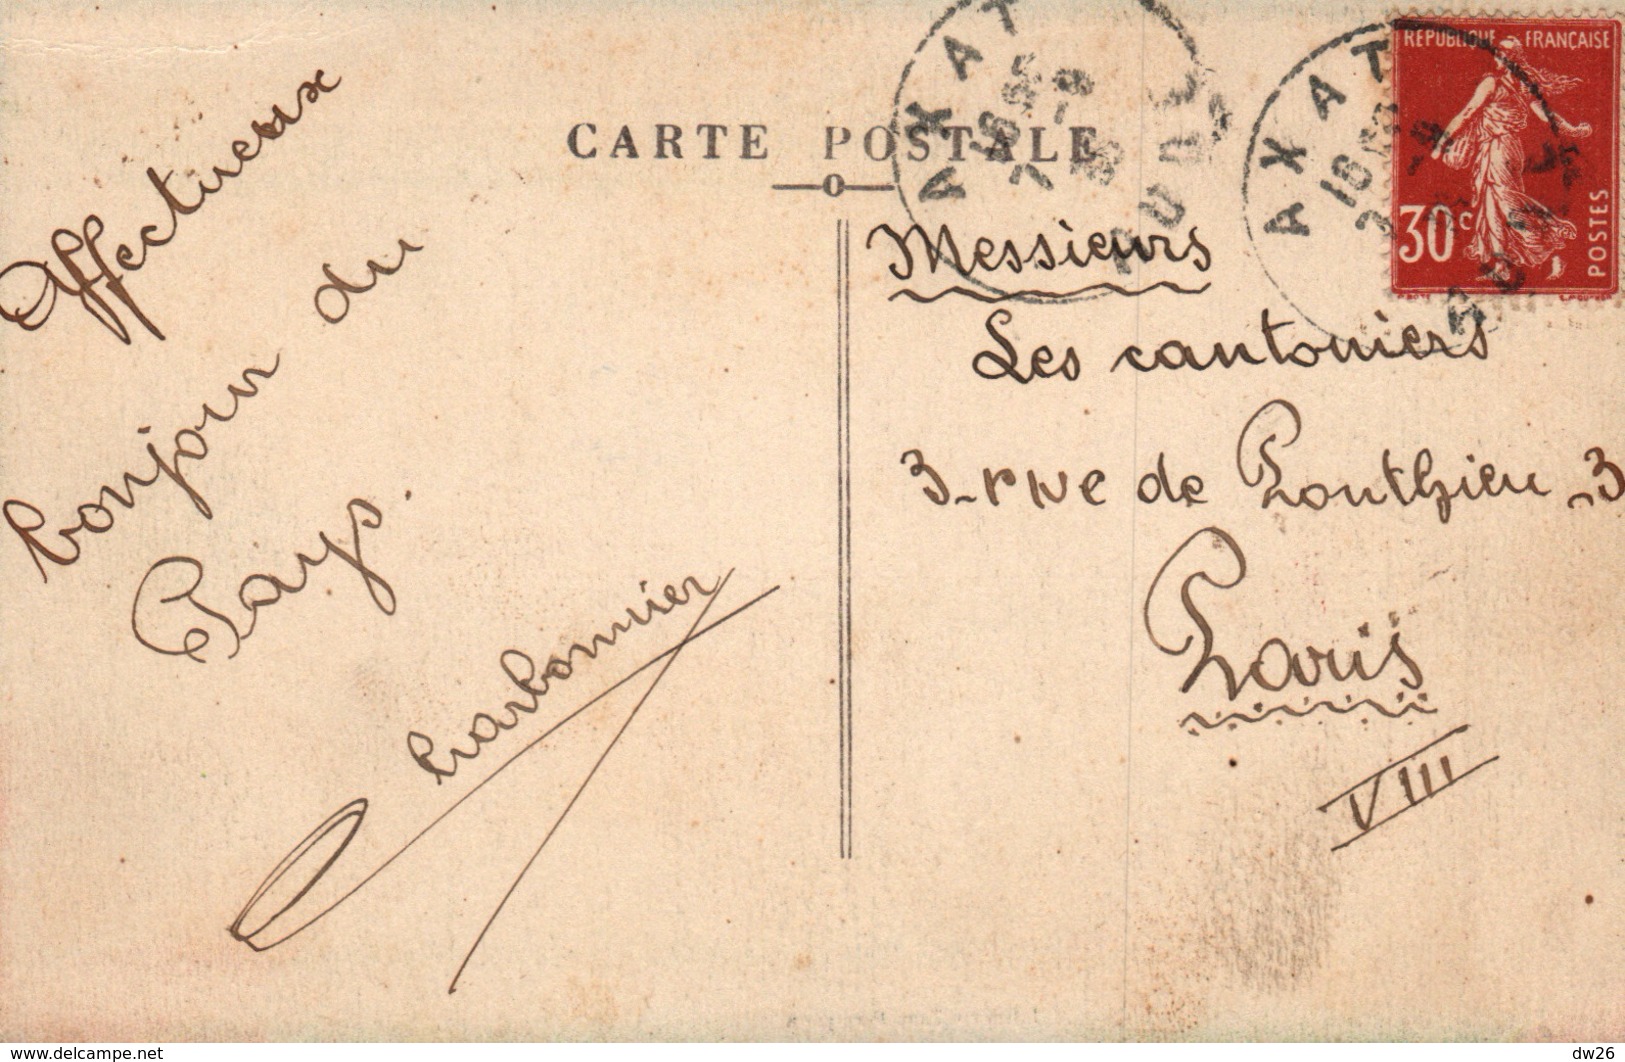 CARTE POSTALE
Affectueux
bonjour du
Pays.
Charbonnier
Messieurs
Les cantoniers
3 - rue de Ponthieu - 3
Paris
VIII
AXAT
AUDE
AXAT
AUDE
REPUBLIQUE FRANÇAISE
30c
POSTES
www.delcampe.net
dw26